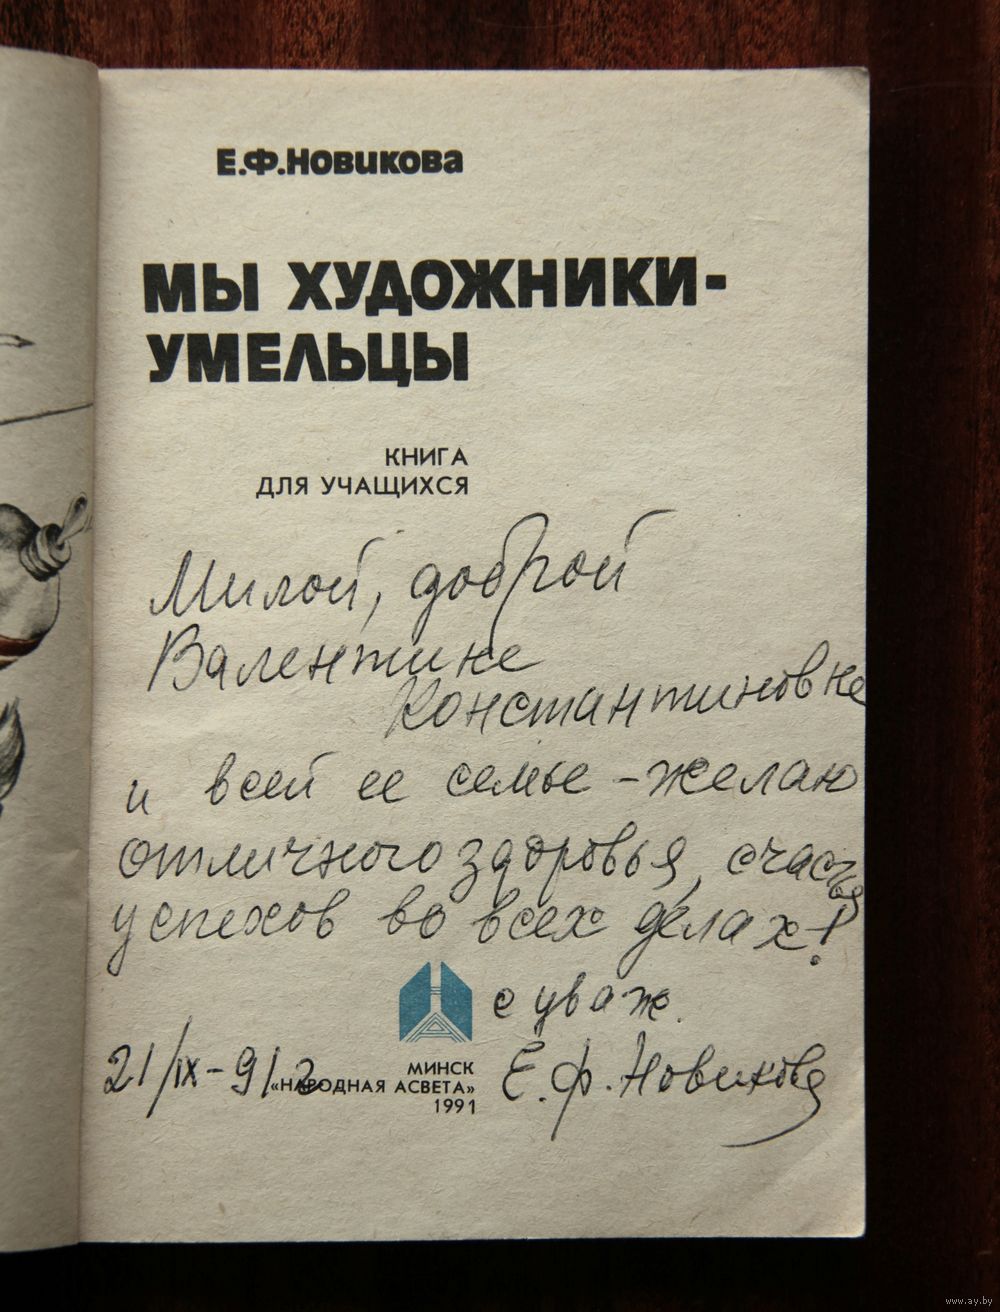 Е.Ф.Новикова
МЫ ХУДОЖНИКИ-
УМЕЛЬЦЫ
КНИГА
ДЛЯ УЧАЩИХСЯ
Милой, доброй
Валентине
Константиновне
и всей ее семье – желаю
отличного здоровья, счастья
успехов во всех делах!
с уваж.
21/IX – 91 г
Е.Ф. Новикова
МИНСК
«НАРОДНАЯ АСВЕТА»
1991
www.ay.by